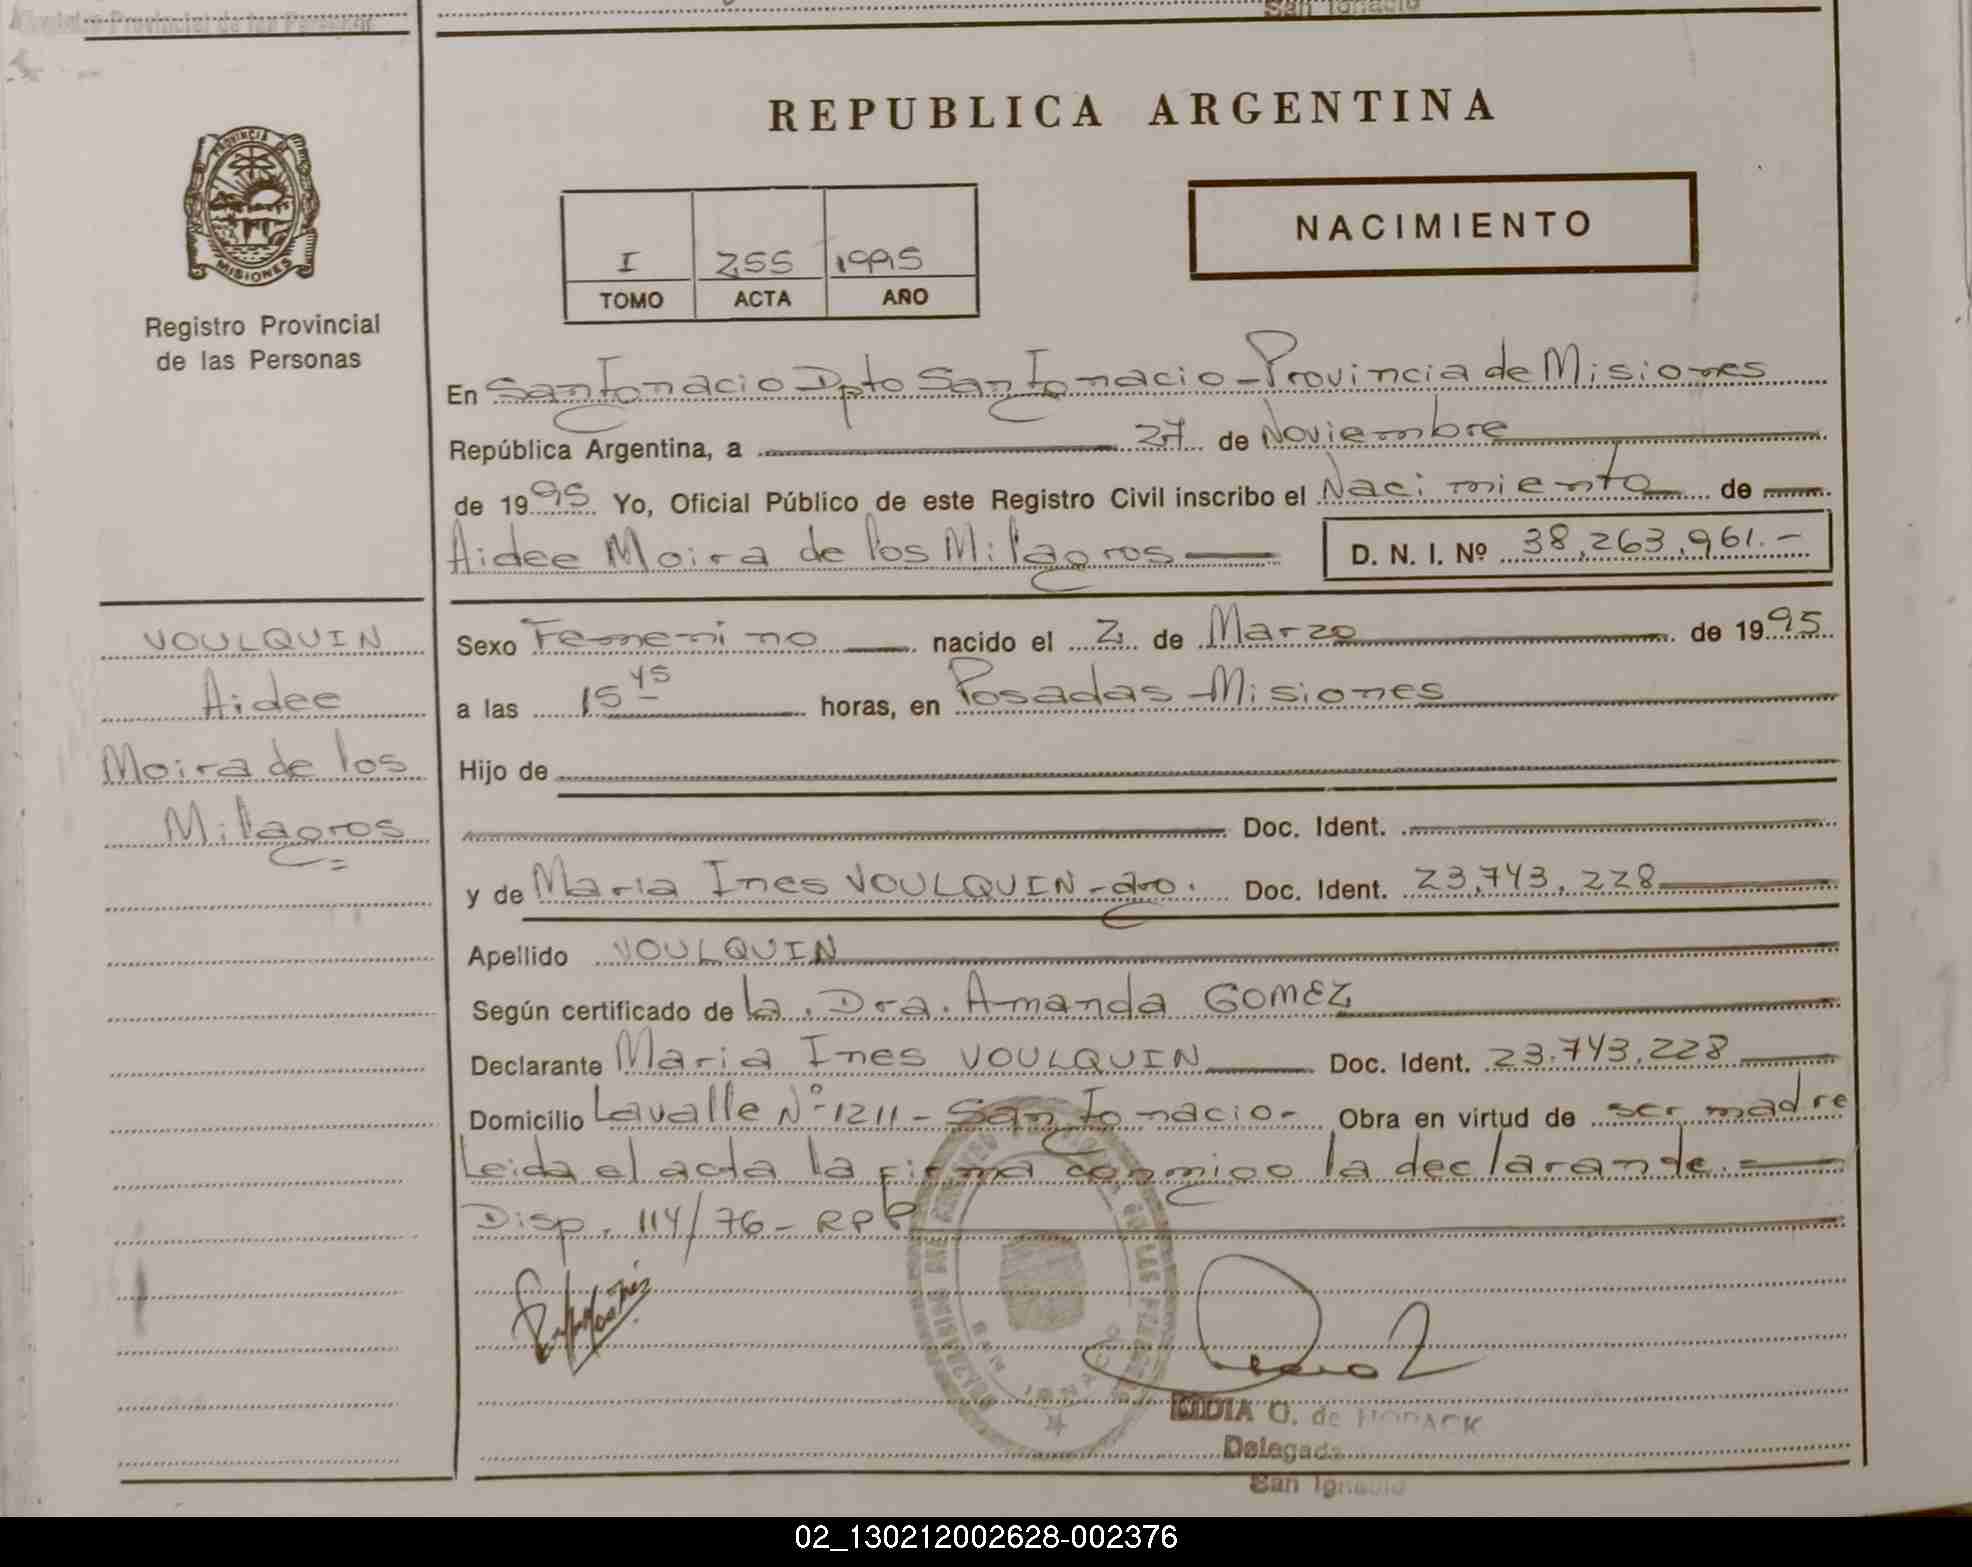 San Ignacio
REPUBLICA ARGENTINA
PROVINCIA DE
MISIONES
Registro Provincial
de las Personas
NACIMIENTO
I 255 1995
TOMO ACTA AÑO
En San Ignacio Dpto San Ignacio - Provincia de Misiones
República Argentina, a 27 de Noviembre
de 1995 Yo, Oficial Público de este Registro Civil inscribo el Nacimiento de
Aidee Moira de los Milagros D. N. I. Nº 38.263.961.-
VOULQUIN
Aidee
Moira de los
Milagros =
Sexo Femenino nacido el 2 de Marzo de 1995
a las 15 45 horas, en Posadas - Misiones
Hijo de
Doc. Ident.
y de Maria Ines VOULQUIN - Doc. Ident. 23.743.228
Apellido VOULQUIN
Según certificado de la Dra. Amanda GOMEZ
Declarante Maria Ines VOULQUIN Doc. Ident. 23.743.228
Domicilio Lavalle Nº 1211 - San Ignacio - Obra en virtud de ser madre
Leida el acta la firma conmigo la declarante. =
Disp. 114/76 - RPP
de
Delegada
San Ignacio
02_130212002628-002376